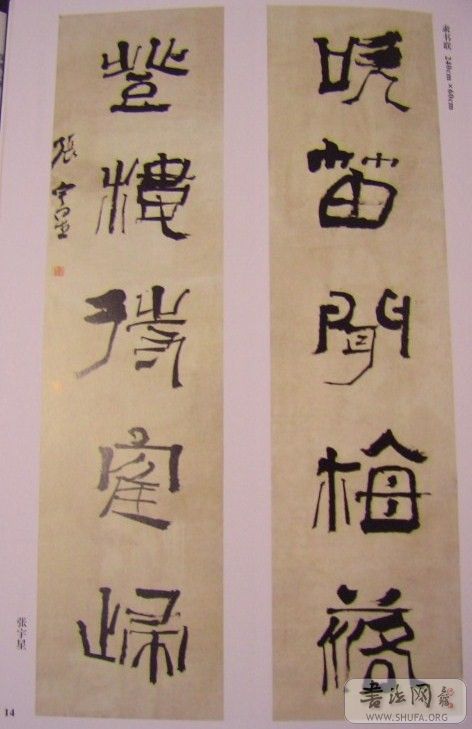 隶书联 248cm×60cm
吹笛聞梅落
登樓待寉歸
張宇星
张宇星
14
書法网
WWW.SHUFA.ORG